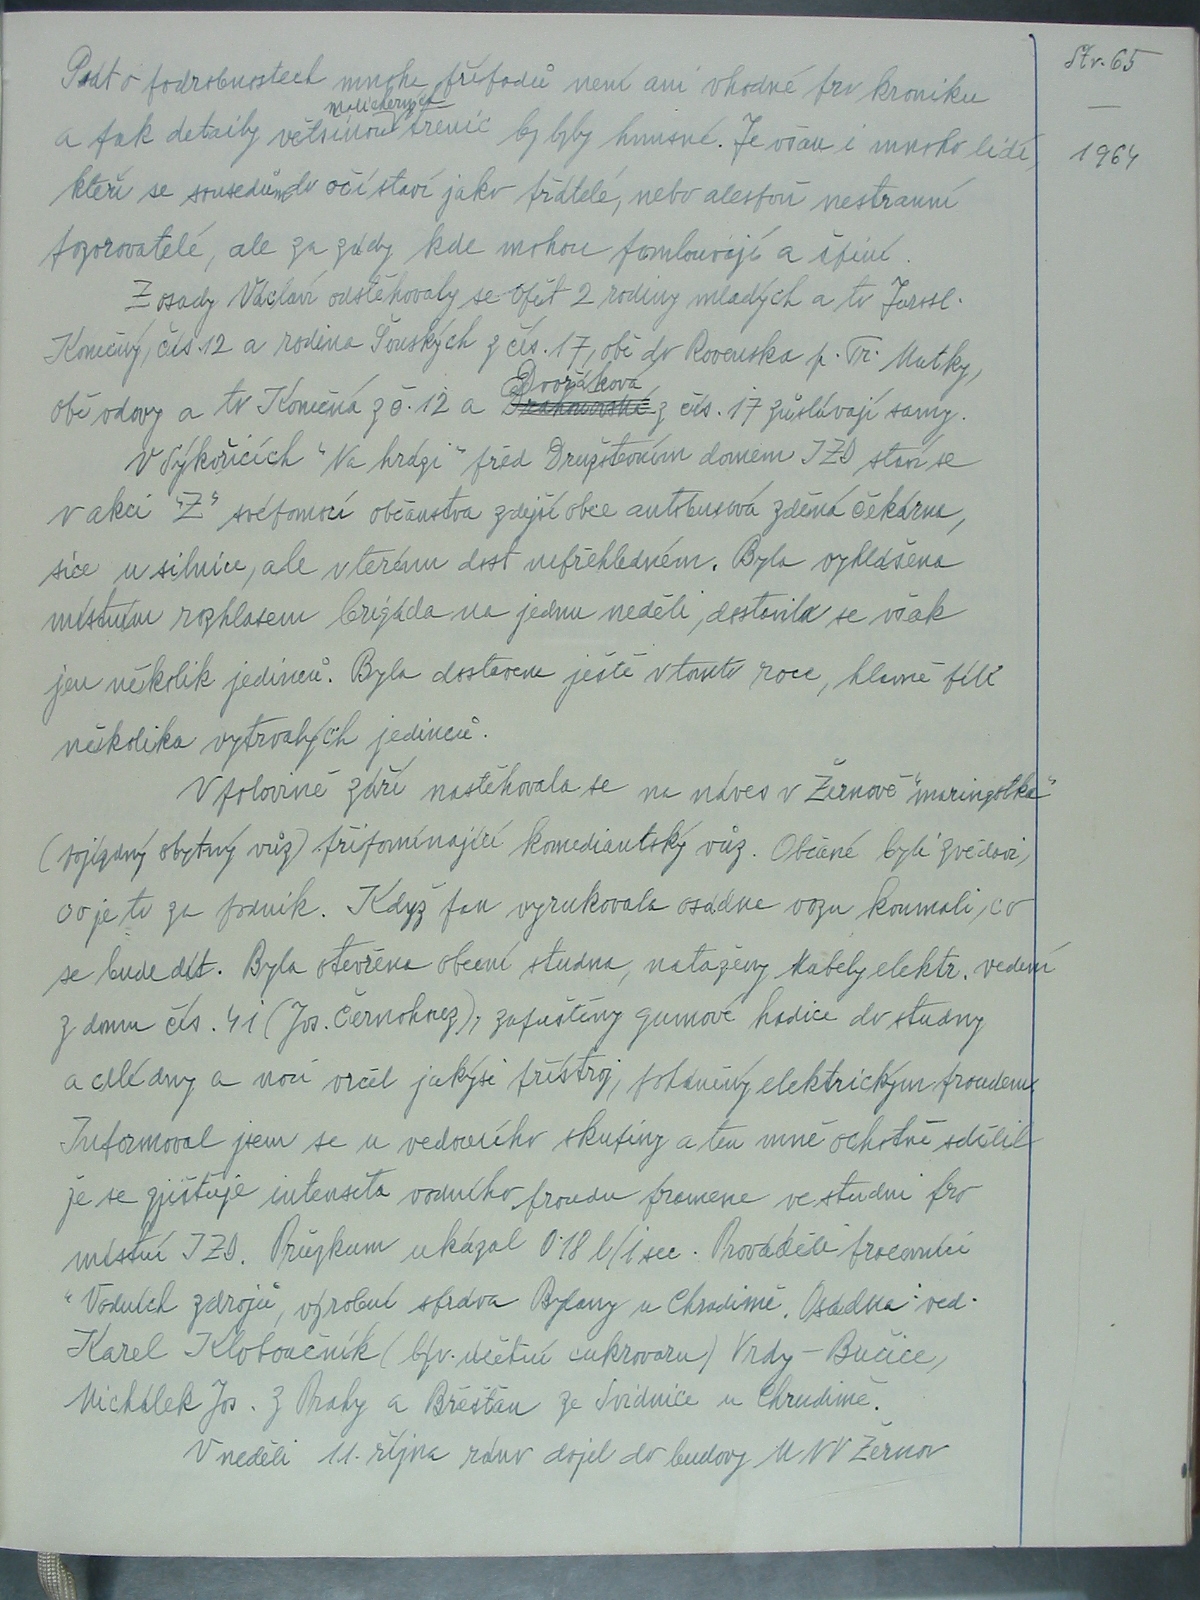 Str. 65
—
1964
Psát o podrobnostech mnoha případů není ani vhodné pro kroniku
a pak detaily většinou malicherných by byly hnusné. Je však i mnoho lidí,
kteří se sousedům do očí staví jako přátelé, nebo alespoň nestranní
pozorovatelé, ale za zády kde mohou pomlouvají a špiní.
Z osady Václaví odstěhovaly se opět 2 rodiny mladých a to Jarosl.
Konečný, čís. 12 a rodina Šonských z čís. 17, obě do Rovenska p. Tr. Matky,
obě vdovy a to Konečná z č. 12 a Dvořáková z čís. 17 zůstávají samy.
V Sýkořicích "Na hrázi" před Družstevním domem JZD staví se
v akci "Z" svépomocí občanstva zdejší obce autobusová zděná čekárna,
sice u silnice, ale v terénu dost nepřehledném. Byla vyhlášena
místním rozhlasem brigáda na jednu neděli, dostavila se však
jen několik jedinců. Byla dostavena ještě v tomto roce, hlavně pílí
několika vytrvalých jedinců.
V polovině září nastěhovala se na náves v Žernově "maringotka"
(pojízdný obytný vůz) připomínající komediantský vůz. Občané byli zvědavi,
co je to za podnik. Když pan vyrukovala osádka vozu koumali, co
se bude dít. Byla otevřena obecní studna, nataženy kabely elektr. vedení
z domu čís. 41 (Jos. Černohouz), zapuštěny gumové hadice do studny
a celé dny a noci vrčel jakýsi přístroj, poháněný elektrickým proudem.
Informoval jsem se u vedoucího skupiny a ten mně ochotně sdělil
že se zjišťuje intensita vodního proudu pramene ve studni pro
místní JZD. Průzkum ukázal 0.18 l/1 sec. Prováděli pracovníci
"Vodních zdrojů, výrobní správa Bylany u Chrudimě. Osádka: ved.
Karel Kloboučník (býv. účetní cukrovaru) Vrdy - Bučice,
Michálek Jos. z Prahy a Břešťan ze Svidnice u Chrudimě.
V neděli 11. října ráno dojel do budovy MNV Žernov